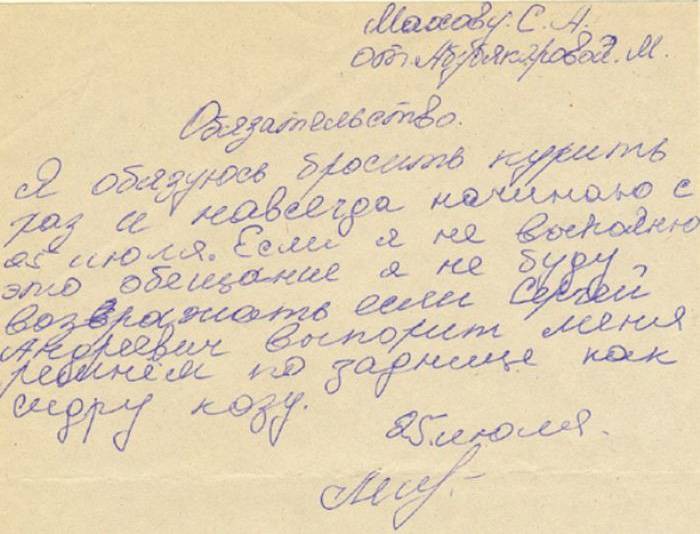 Махову. С. А.
от Абубякяровой. М.
Обязательство.
Я обязуюсь бросить курить
раз и навсегда начинаю с
25 июля. Если я не выполню
это обещание я не буду
возвражать если Сергей
Андреевич выпорит меня
ремнём по заднице как
сидру козу.
25 июля.